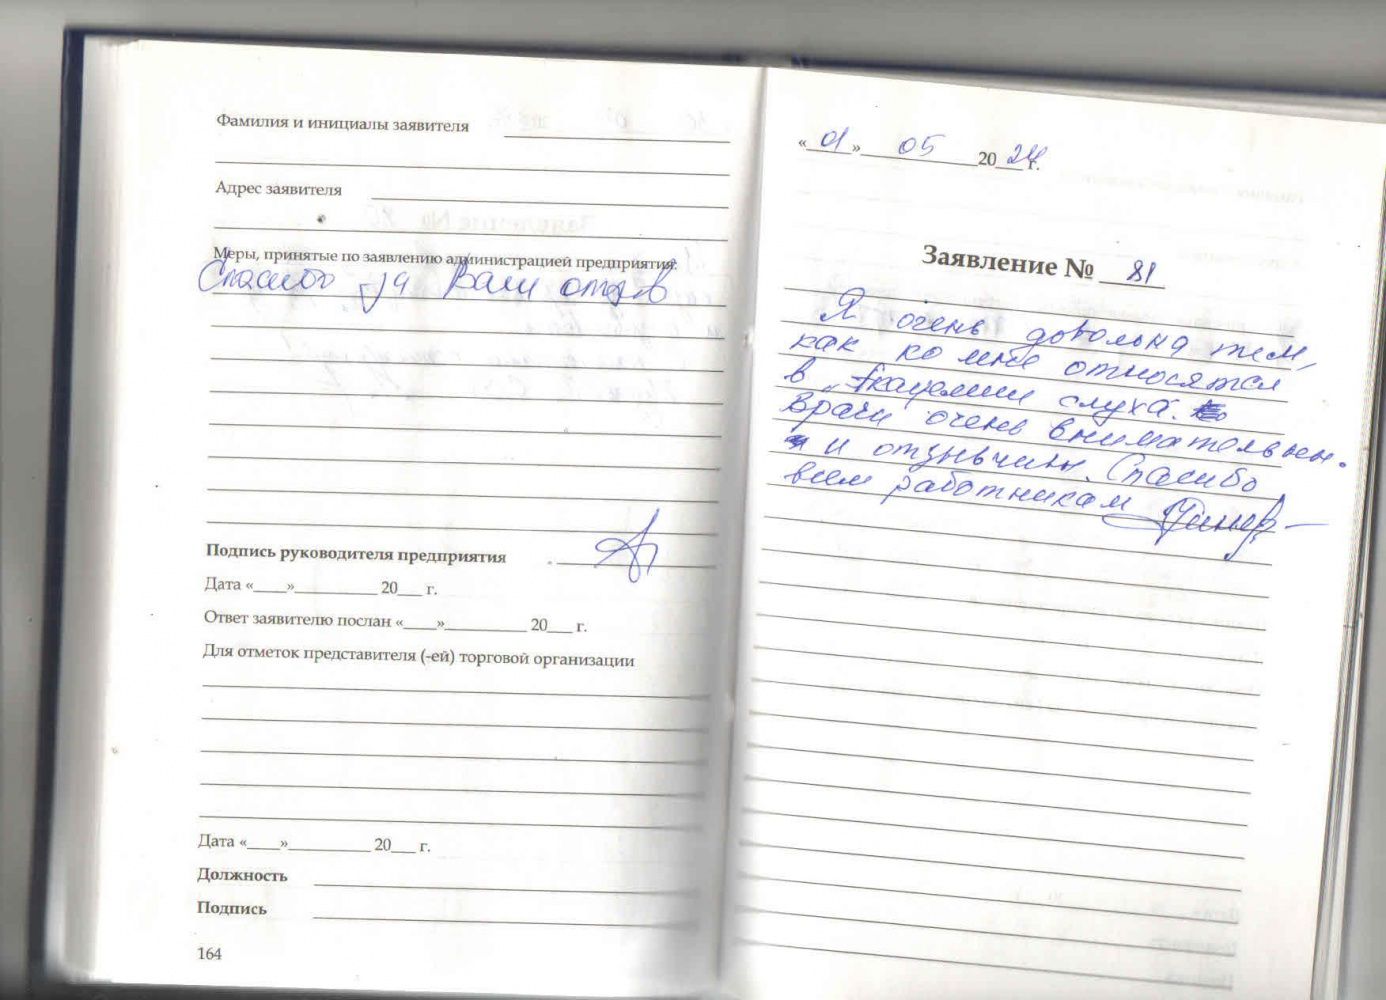 Фамилия и инициалы заявителя
Адрес заявителя
Меры, принятые по заявлению администрацией предприятия:
Спасибо за Ваш отзыв
Подпись руководителя предприятия
Дата «____»__________ 20___ г.
Ответ заявителю послан «____»__________ 20___ г.
Для отметок представителя (-ей) торговой организации
Дата «____»__________ 20___ г.
Должность
Подпись
164
« 01 » 05 2024 г.
Заявление № 81
Я очень довольна тем,
как ко мне относятся
в „Академии слуха.
Врачи очень внимательны.
и отзывчивы. Спасибо
всем работникам